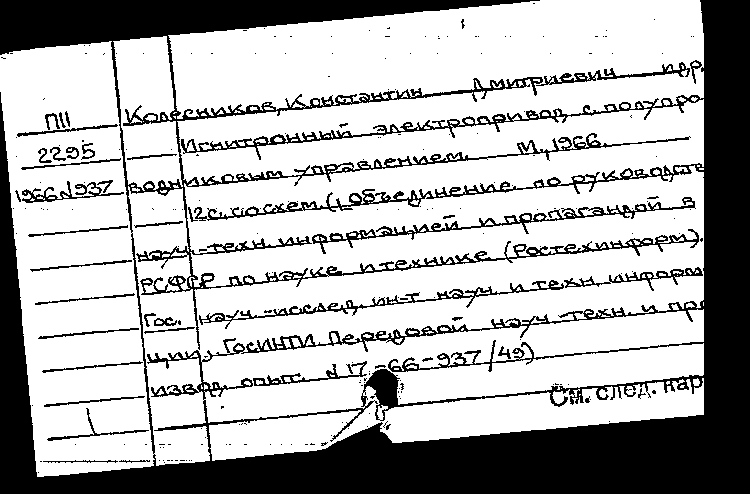 П11 Колесников, Константин Дмитриевич и др.
2295 Игнитронный электропривод с полупро-
1966 N937 водниковым управлением. М., 1966.
12 с. со схем. (Объединение по руководств
науч.-техн. информацией и пропагандой в
РСФСР по науке и технике (Ростехинформ).
Гос. науч.-исслед. ин-т науч. и техн. информ
ции, ГОСИНТИ. Передовой науч.-техн. и про
извод. опыт. N 17-66-937/49)
См. след. кар